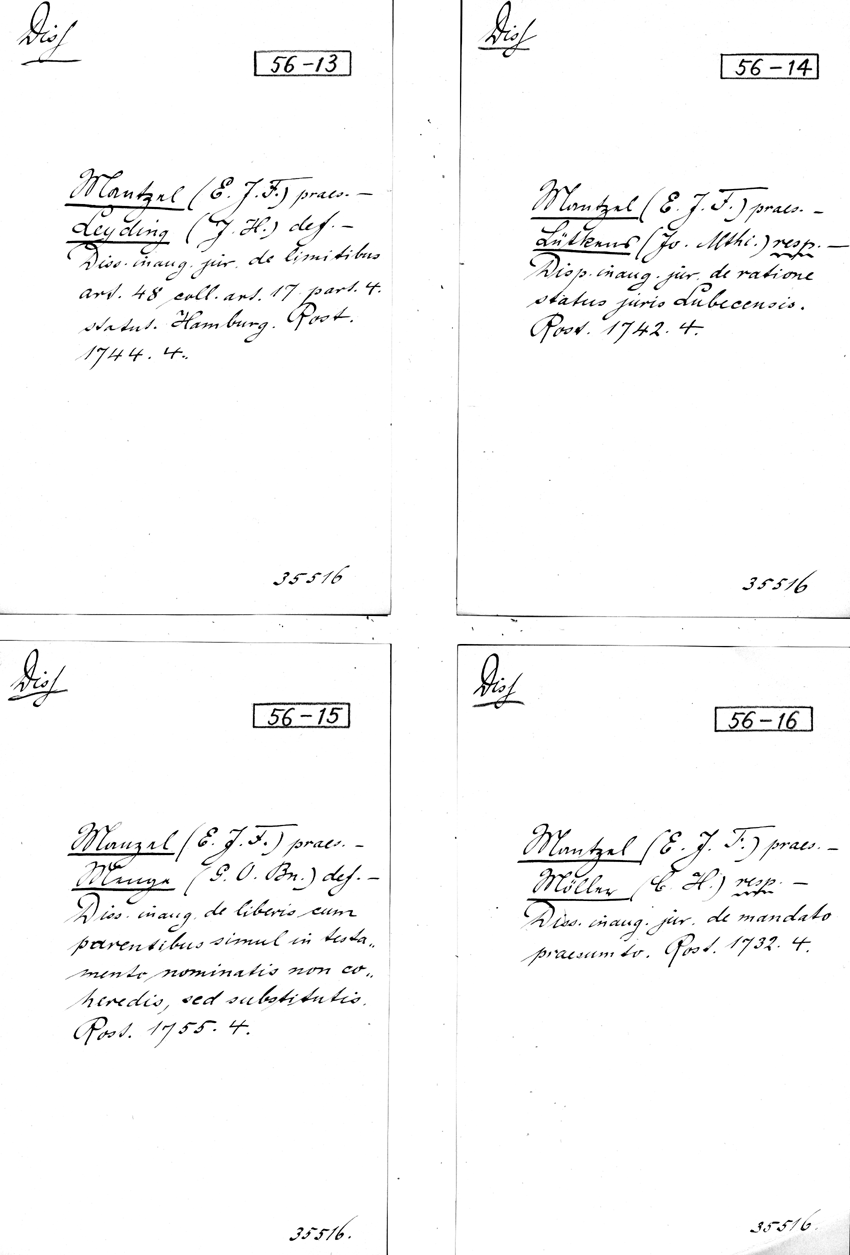 Diss
56-13
Mantzel (E. J. F.) praes. –
Leyding (J. H.) def. –
Diss. inaug. jur. de limitibus
art. 48 coll. art. 17 part. 4.
statut. Hamburg. Rost.
1744. 4.
35516
Diss
56-14
Mantzel (E. J. F.) praes. –
Lütkens (Jo. Mthi.) resp. –
Disp. inaug. jur. de ratione
status juris Lubecensis.
Rost. 1742. 4.
35516
Diss
56-15
Manzel (E. J. F.) praes. –
Menge (G. O. Bn.) def. –
Diss. inaug. de liberis cum
parentibus simul in testa„
mento nominatis non co„
heredis, sed substitutis.
Rost. 1755. 4.
35516.
Diss
56-16
Mantzel (E. J. F.) praes. –
Möller (C. H.) resp. –
Diss. inaug. jur. de mandato
praesumto. Rost. 1732. 4.
35516.